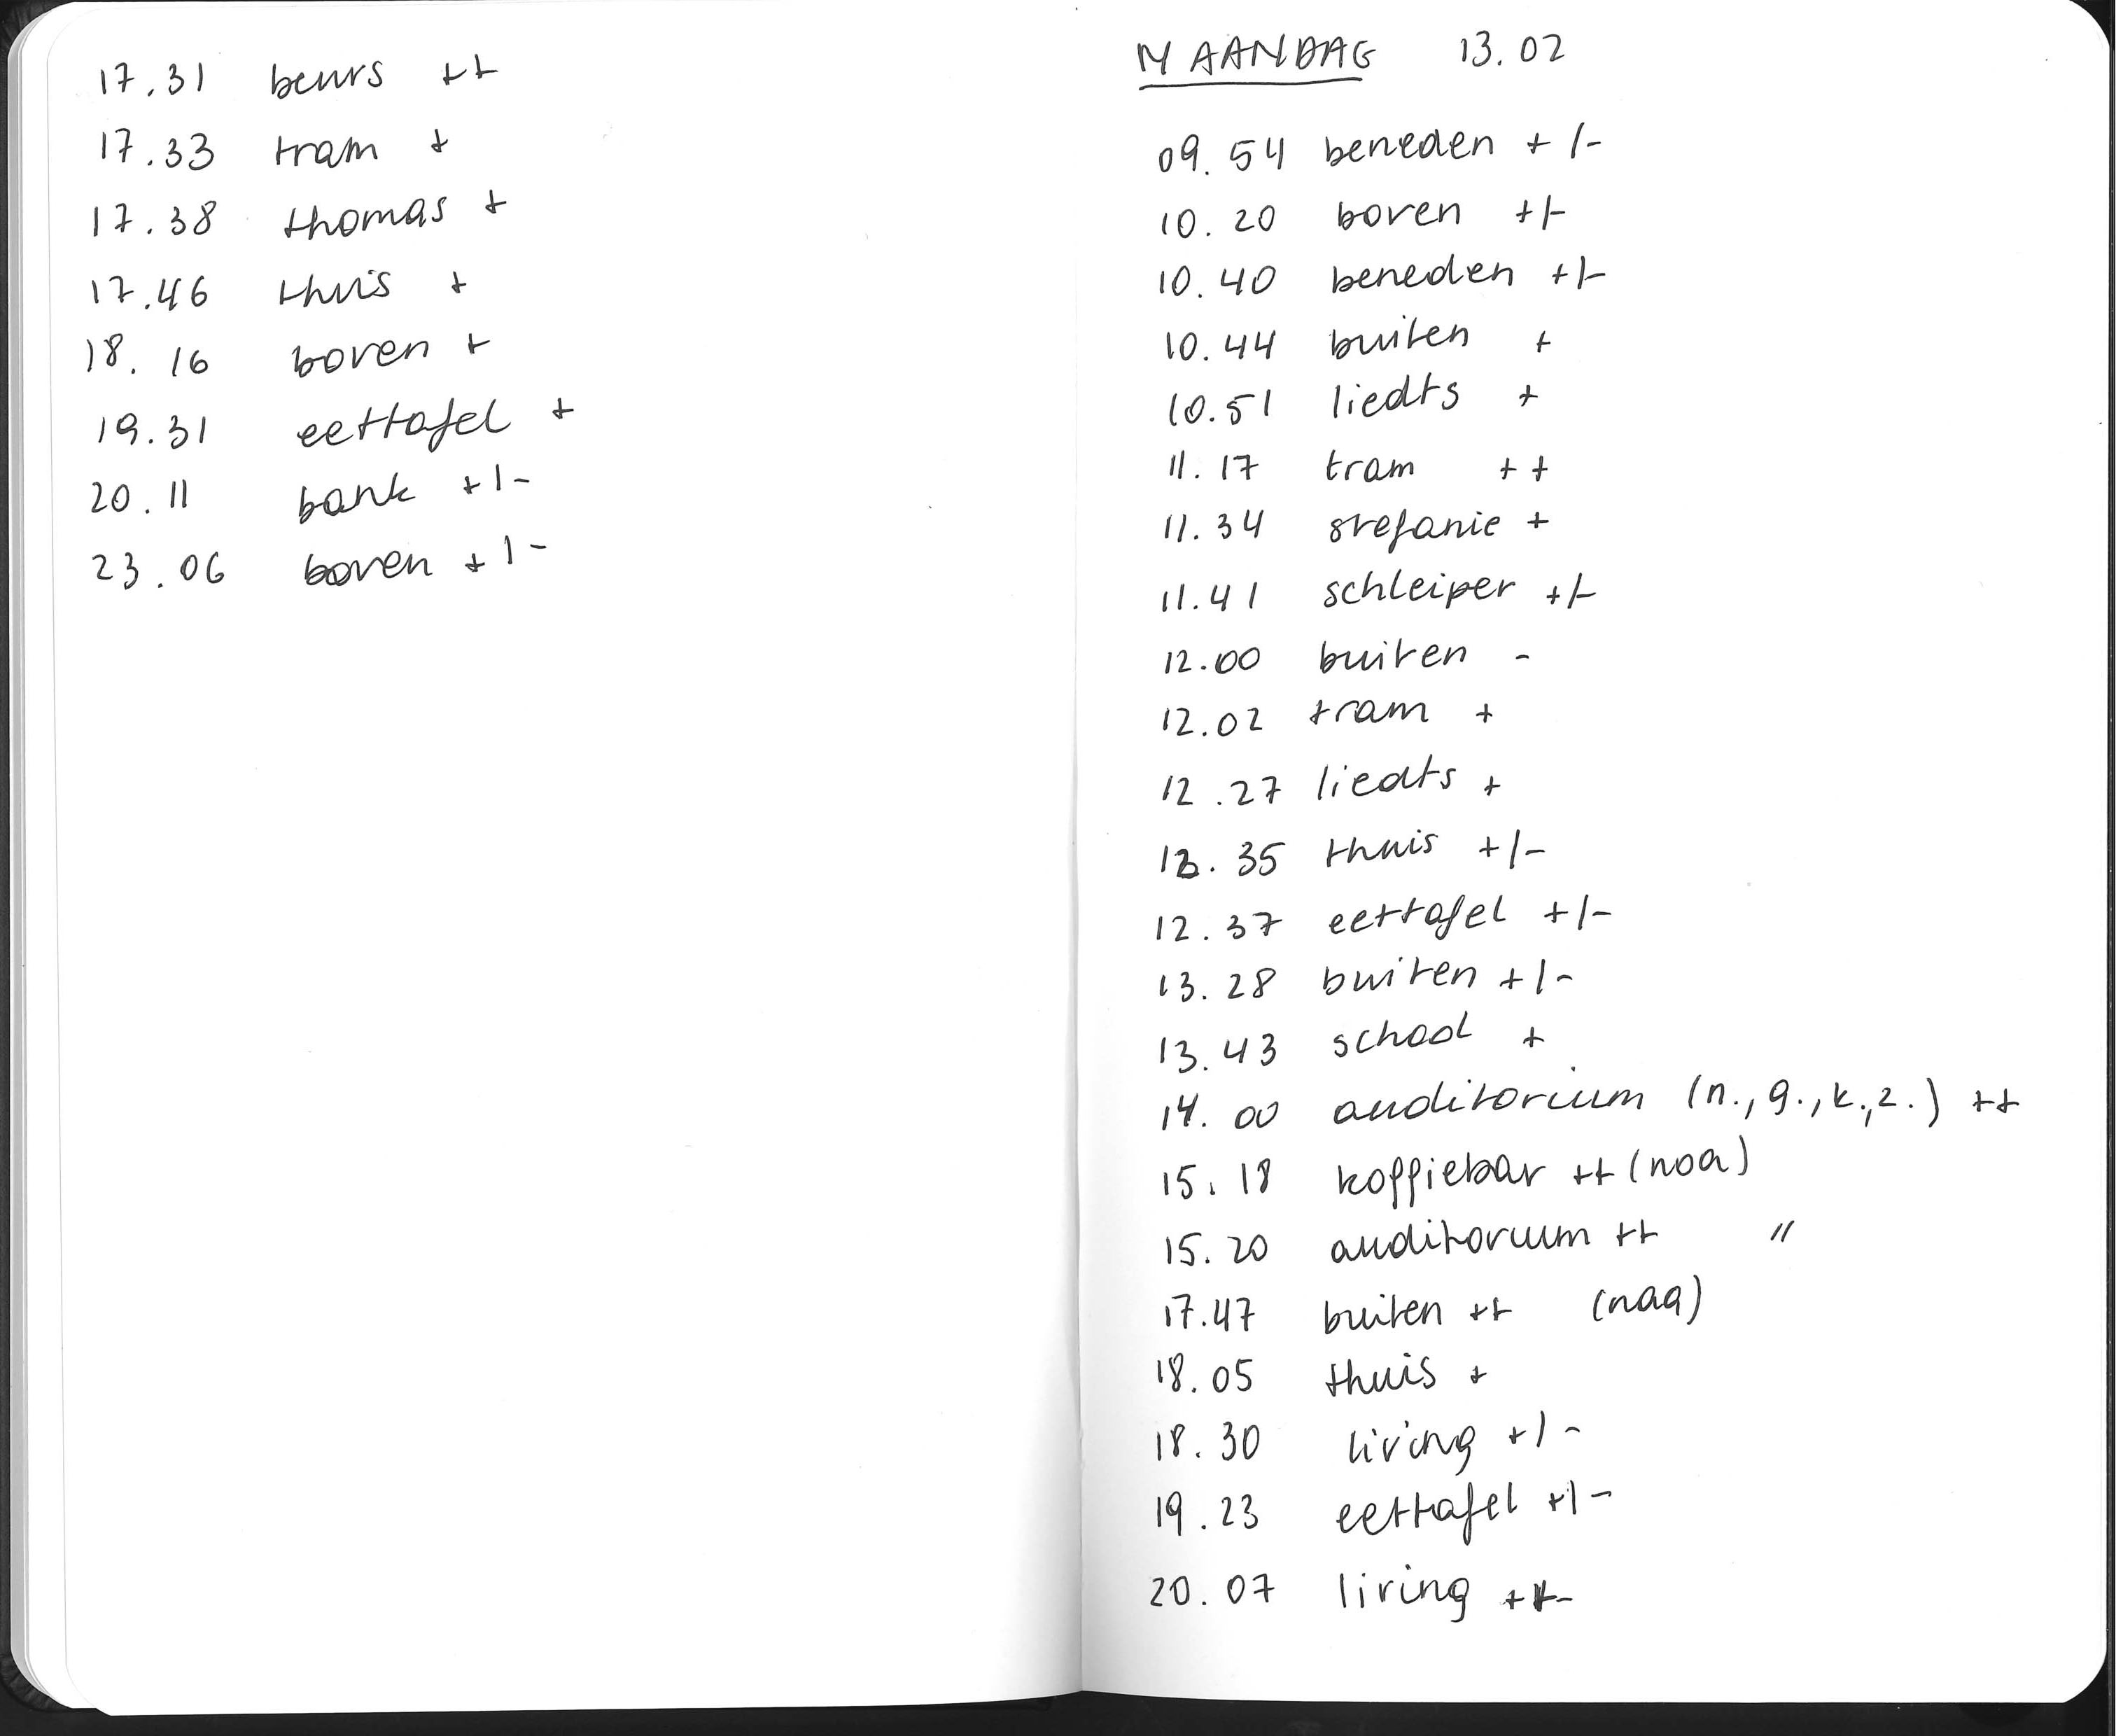 17.31 beurs ++
17.33 tram +
17.38 thomas +
17.46 thuis +
18.16 boven +
19.31 eettafel +
20.11 bank +/-
23.06 boven +/-
MAANDAG 13.02
09.54 beneden +/-
10.20 boven +/-
10.40 beneden +/-
10.44 buiten +
10.51 liedts +
11.17 tram ++
11.34 stefanie +
11.41 schleiper +/-
12.00 buiten -
12.02 tram +
12.27 liedts +
12.35 thuis +/-
12.37 eettafel +/-
13.28 buiten +/-
13.43 school +
14.00 auditorium (n., g., k., z.) ++
15.18 koffiebar ++ (noa)
15.20 auditorium ++ "
17.47 buiten ++ (noa)
18.05 thuis +
18.30 living +/-
19.23 eettafel +/-
20.07 living +/-